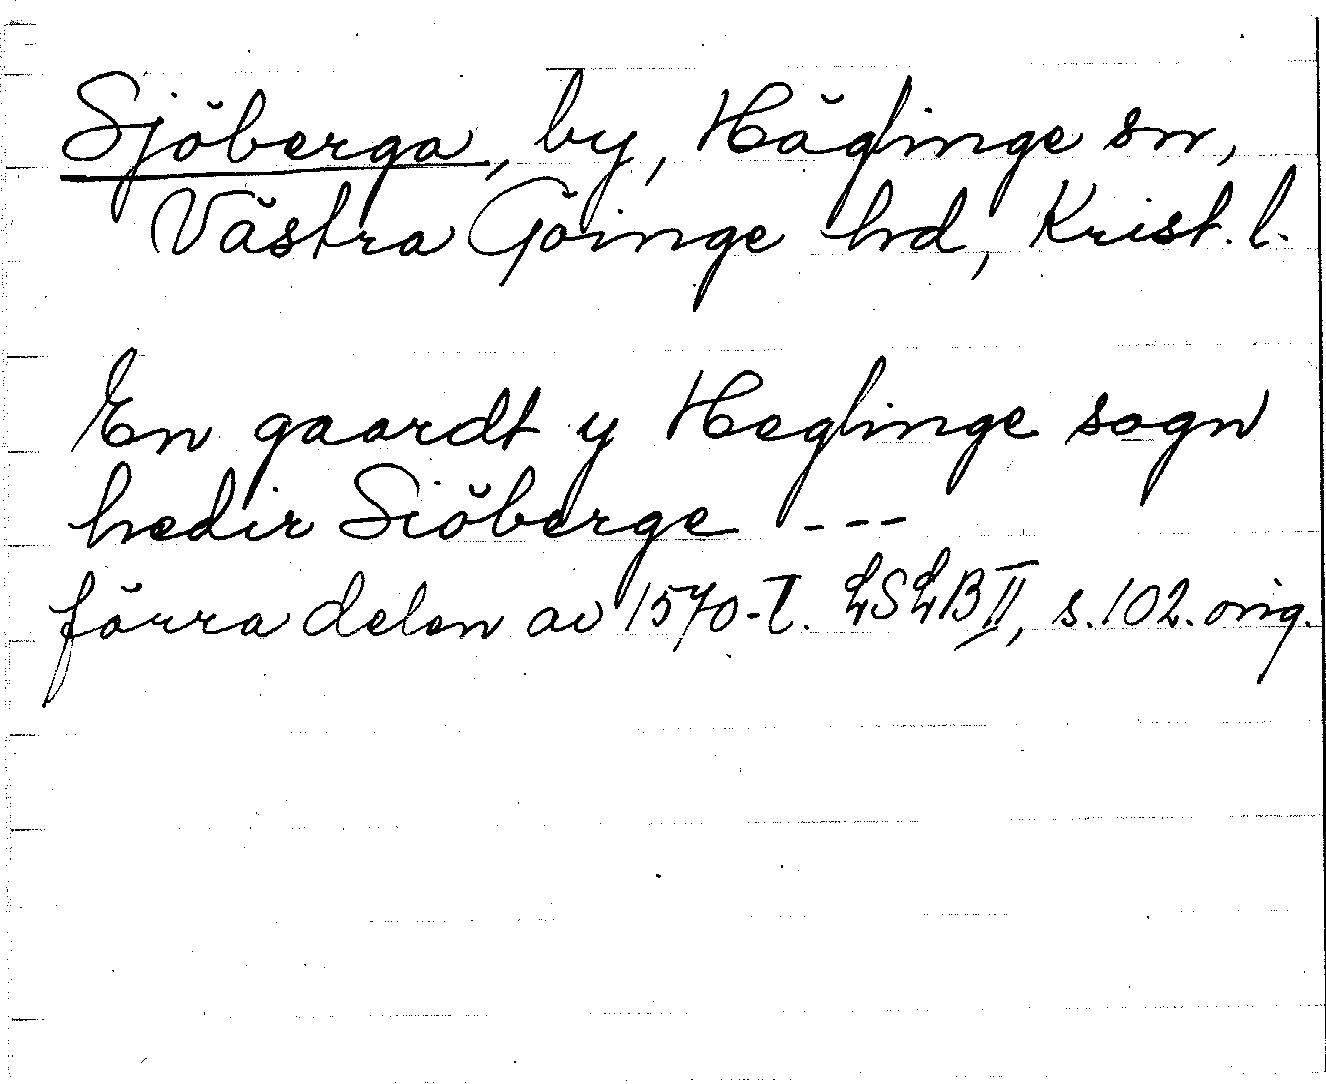 Sjöberga, by, Häglinge sn,
Västra Göinge hd, Krist. l.
En gaardt y Heglinge sogn
hedir Siöberge ---
förra delen av 1570-t. LSLB II, s. 102. orig.